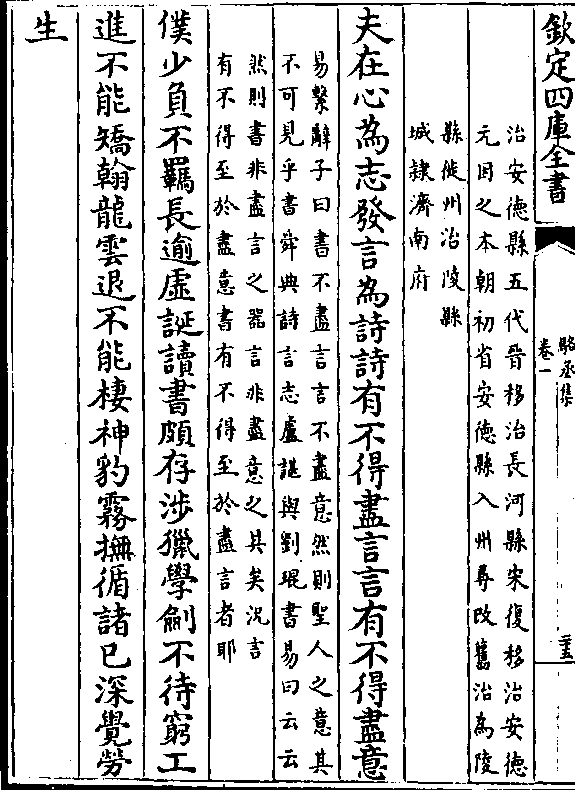 欽定四庫全書
駱丞集
卷一
三五
治安德縣五代晉移治長河縣宋復移治安德
元因之本朝初省安德縣入州尋改舊治為陵
縣徙州治陵縣
城隸濟南府
夫在心為志發言為詩詩有不得盡言言有不得盡意
易繫辭子曰書不盡言言不盡意然則聖人之意其
不可見乎書舜典詩言志盧諶與劉琨書易曰云云
然則書非盡言之器言非盡意之具矣況言
有不得至於盡意書有不得至於盡言者耶
僕少負不羈長逾虛誕讀書頗存涉獵學劍不待窮工
進不能矯翰龍雲退不能棲神豹霧撫循諸已深覺勞
生